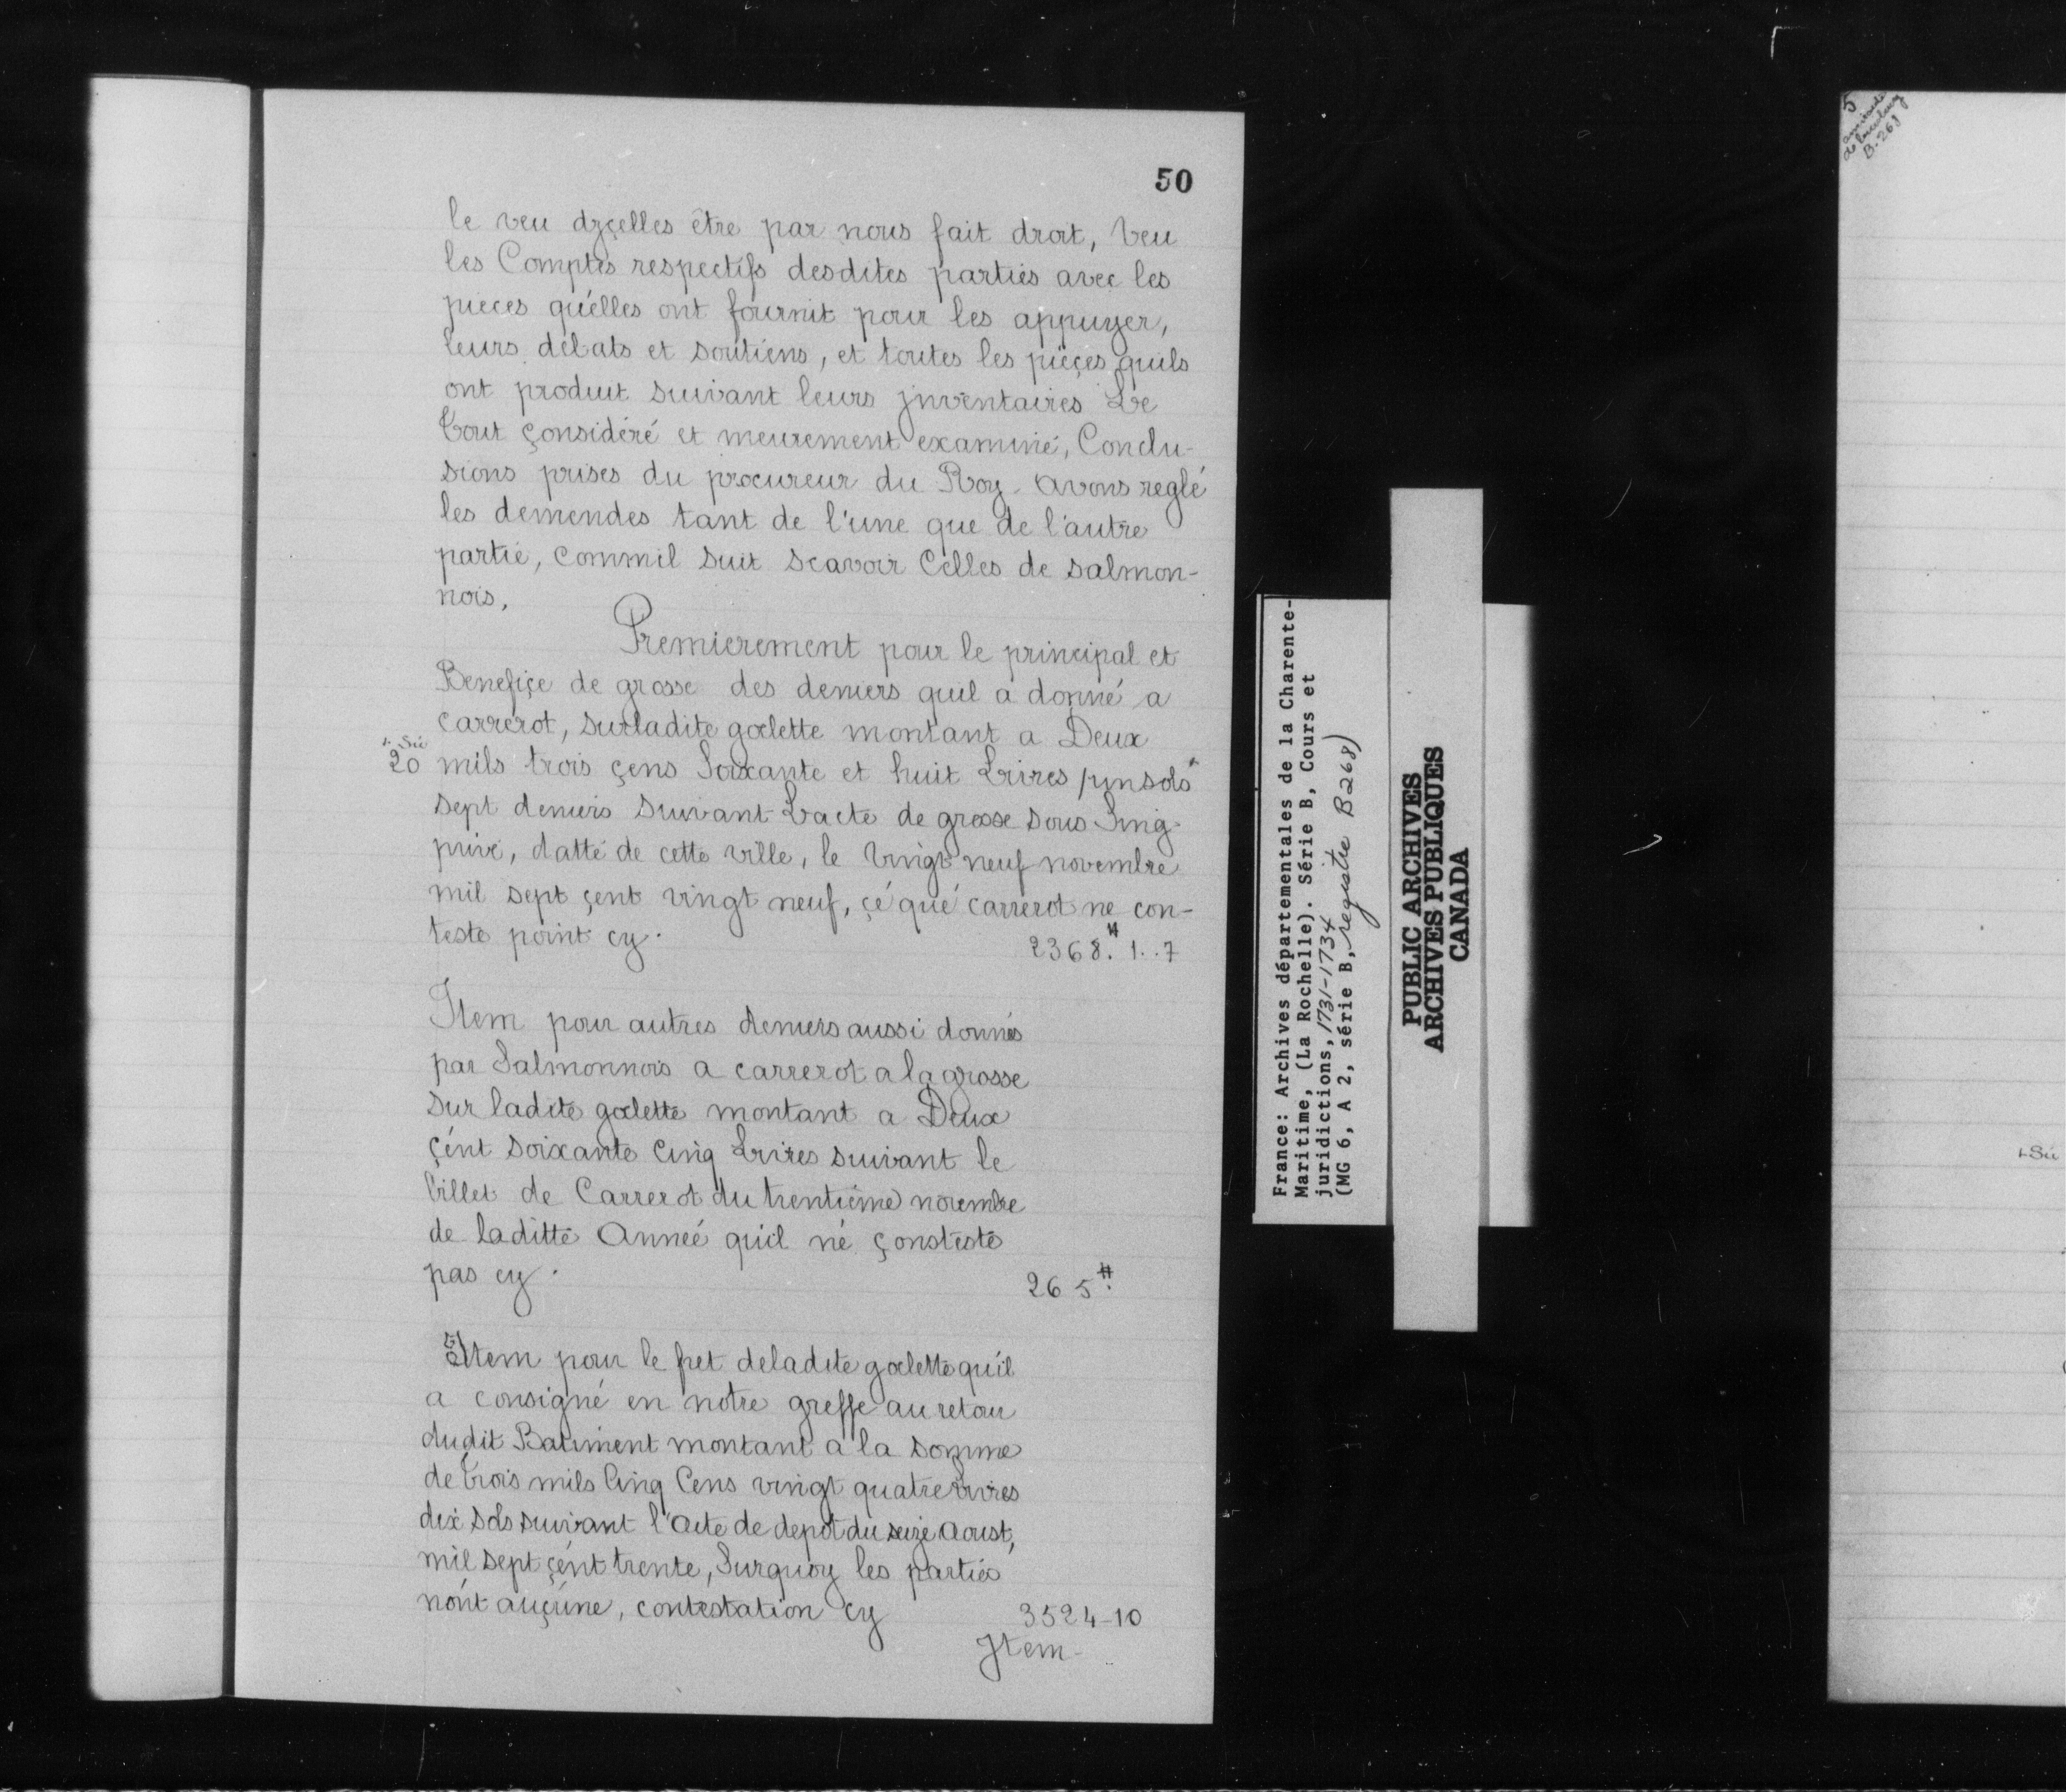 50
le veu dyçelles être par nous fait droit, Veu
les Comptes respectifs desdites parties avec les
pieces qu'elles ont fournit pour les appuyer,
leurs debats et soutiens, et toutes les pieçes quils
ont produit suivant leurs jnventaires Le
Tout çonsidéré et meurement examiné, Conclu-
sions prises du procureur du Roy. avons reglé
les demendes tant de l'une que de l'autre
partie, commil suit scavoir Celles de salmon-
nois,
Premierement pour le principal et
Benefiçe de grosse des deniers quil a donné a
carrerot, surladite goelette montant a Deux
Sic
20 mils trois çens Soixante et huit Livres un sols
sept deniers suivant Lacte de grosse sous Sing
privé, datté de cette ville, le Vingt neuf novembre
mil sept çent vingt neuf, çé qué carrerot ne con-
teste point cy. 2368.# 1..7
Item pour autres deniers aussi donnés
par Salmonnois a carrerot a la grosse
sur ladite goelette montant a Deux
çént soixante Cinq Livres suivant le
billet de Carrerot du trentiéme novembre
de laditte Anneé quil né çonsteste
pas cy. 265.#
Item pour le fret deladite goelette qu'il
a consigné en notre greffe au retour
dudit Batiment montant a la somme
de Trois mils Cinq Cens vingt quatre Livres
dix sols suivant l'acte de depôt du seize Aoust,
mil sept çént trente, Surquoy les parties
nónt auçúne, contestation cy 3524-10
Jtem-
France: Archives départementales de la Charente-
Maritime, (La Rochelle). Série B, Cours et
juridictions, 1731-1734
(MG 6, A 2, série B, registre B268)
PUBLIC ARCHIVES
ARCHIVES PUBLIQUES
CANADA
5
amirauté
de Louisbourg
B. 268
Sic